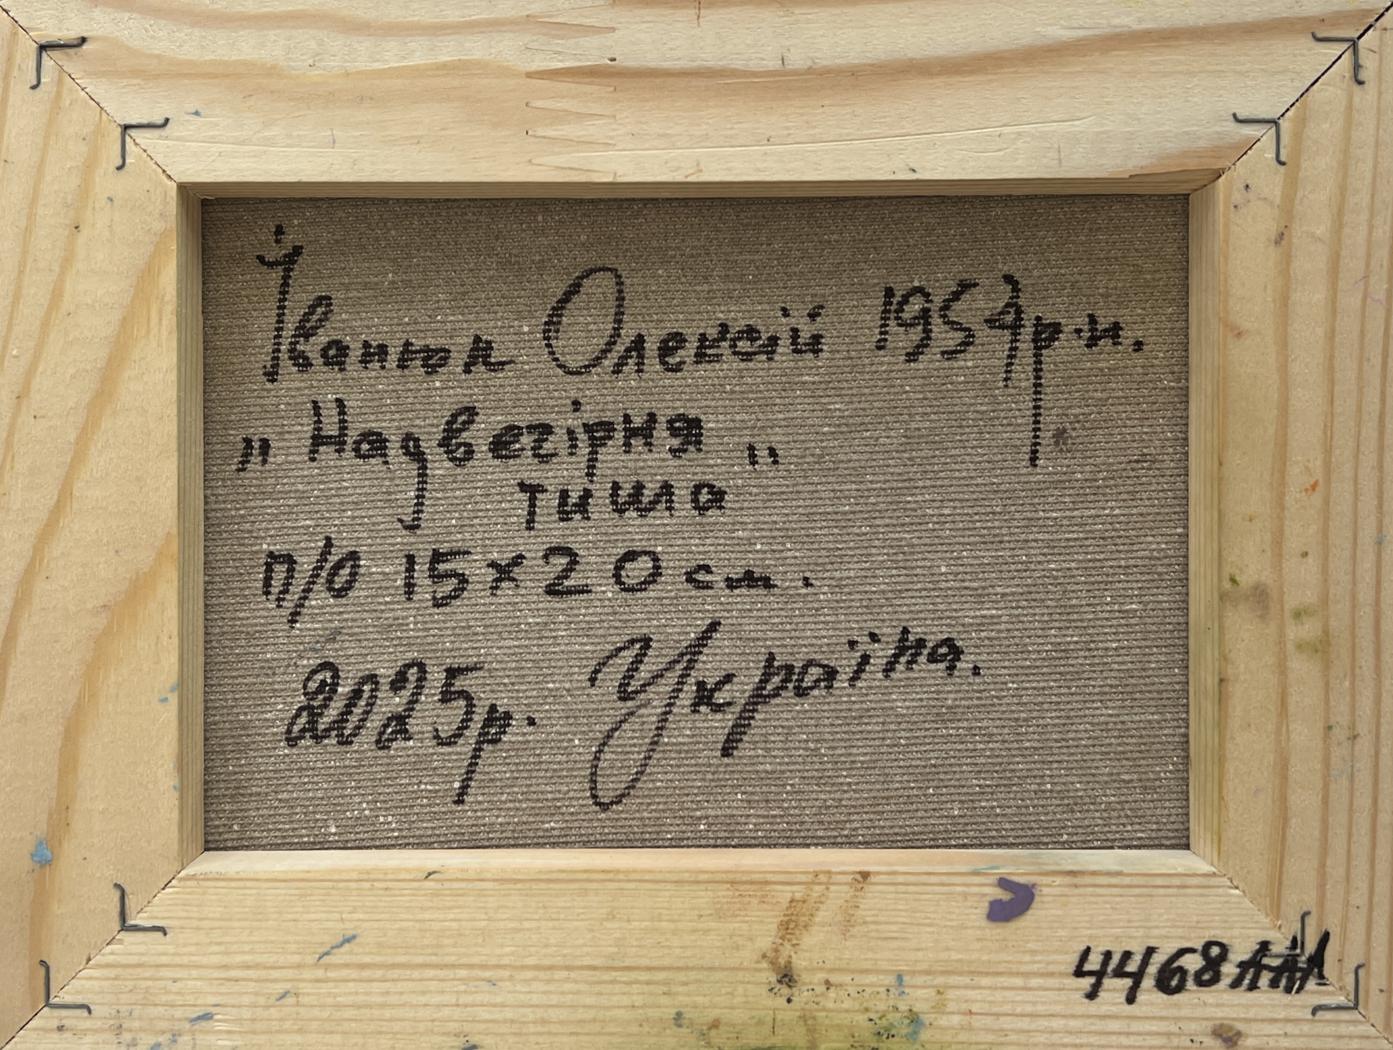 Іванюк Олексій 1957 р.н.
„Надвегірня„
тиша
п/о 15×20 см.
2025р. Україна.
4468ААА